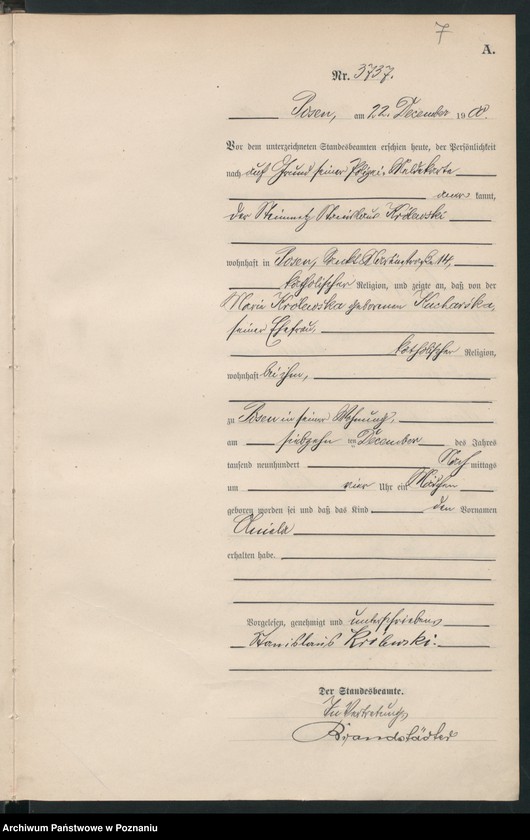 7
A.
Nr. 3737.
Posen, am 22. December 1900.
Vor dem unterzeichneten Standesbeamten erschien heute, der Persönlichkeit
nach auf Grund seiner Polizei-Meldekarte
kannt,
der Steinmetz Stanislaus Królewski
wohnhaft in Posen, 14,
katholischer Religion, und zeigte an, daß von der
Marie Królewska geborenen Kucharska,
seiner Ehefrau,
katholischer Religion,
wohnhaft bei ihm,
zu Posen in seiner Wohnung,
am siebzehn ten December des Jahres
tausend neunhundert Nach mittags
um vier Uhr ein Mädchen
geboren worden sei und daß das Kind den Vornamen
Aniela
erhalten habe.
Vorgelesen, genehmigt und unterschrieben
Stanislaus Królewski.
Der Standesbeamte.
In Vertretung
Brandstädter
Archiwum Państwowe w Poznaniu